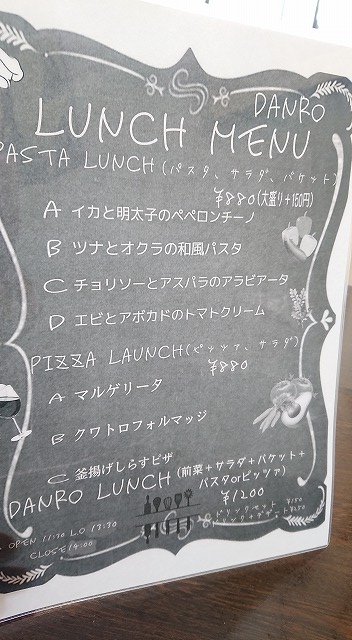 DANRO
LUNCH MENU
PASTA LUNCH(パスタ、サラダ、バケット)
¥880(大盛り+150円)
A イカと明太子のペペロンチーノ
B ツナとオクラの和風パスタ
C チョリソーとアスパラのアラビアータ
D エビとアボカドのトマトクリーム
PIZZA LAUNCH(ピッツァ、サラダ)
¥880
A マルゲリータ
B クワトロフォルマッジ
C 釜揚げしらすピザ
DANRO LUNCH (前菜+サラダ+バケット+
パスタorピッツァ)
¥1200
ドリンクセット ¥150
ドリンク+デザート
OPEN 11:30 L.O 13:30
CLOSE 14:00